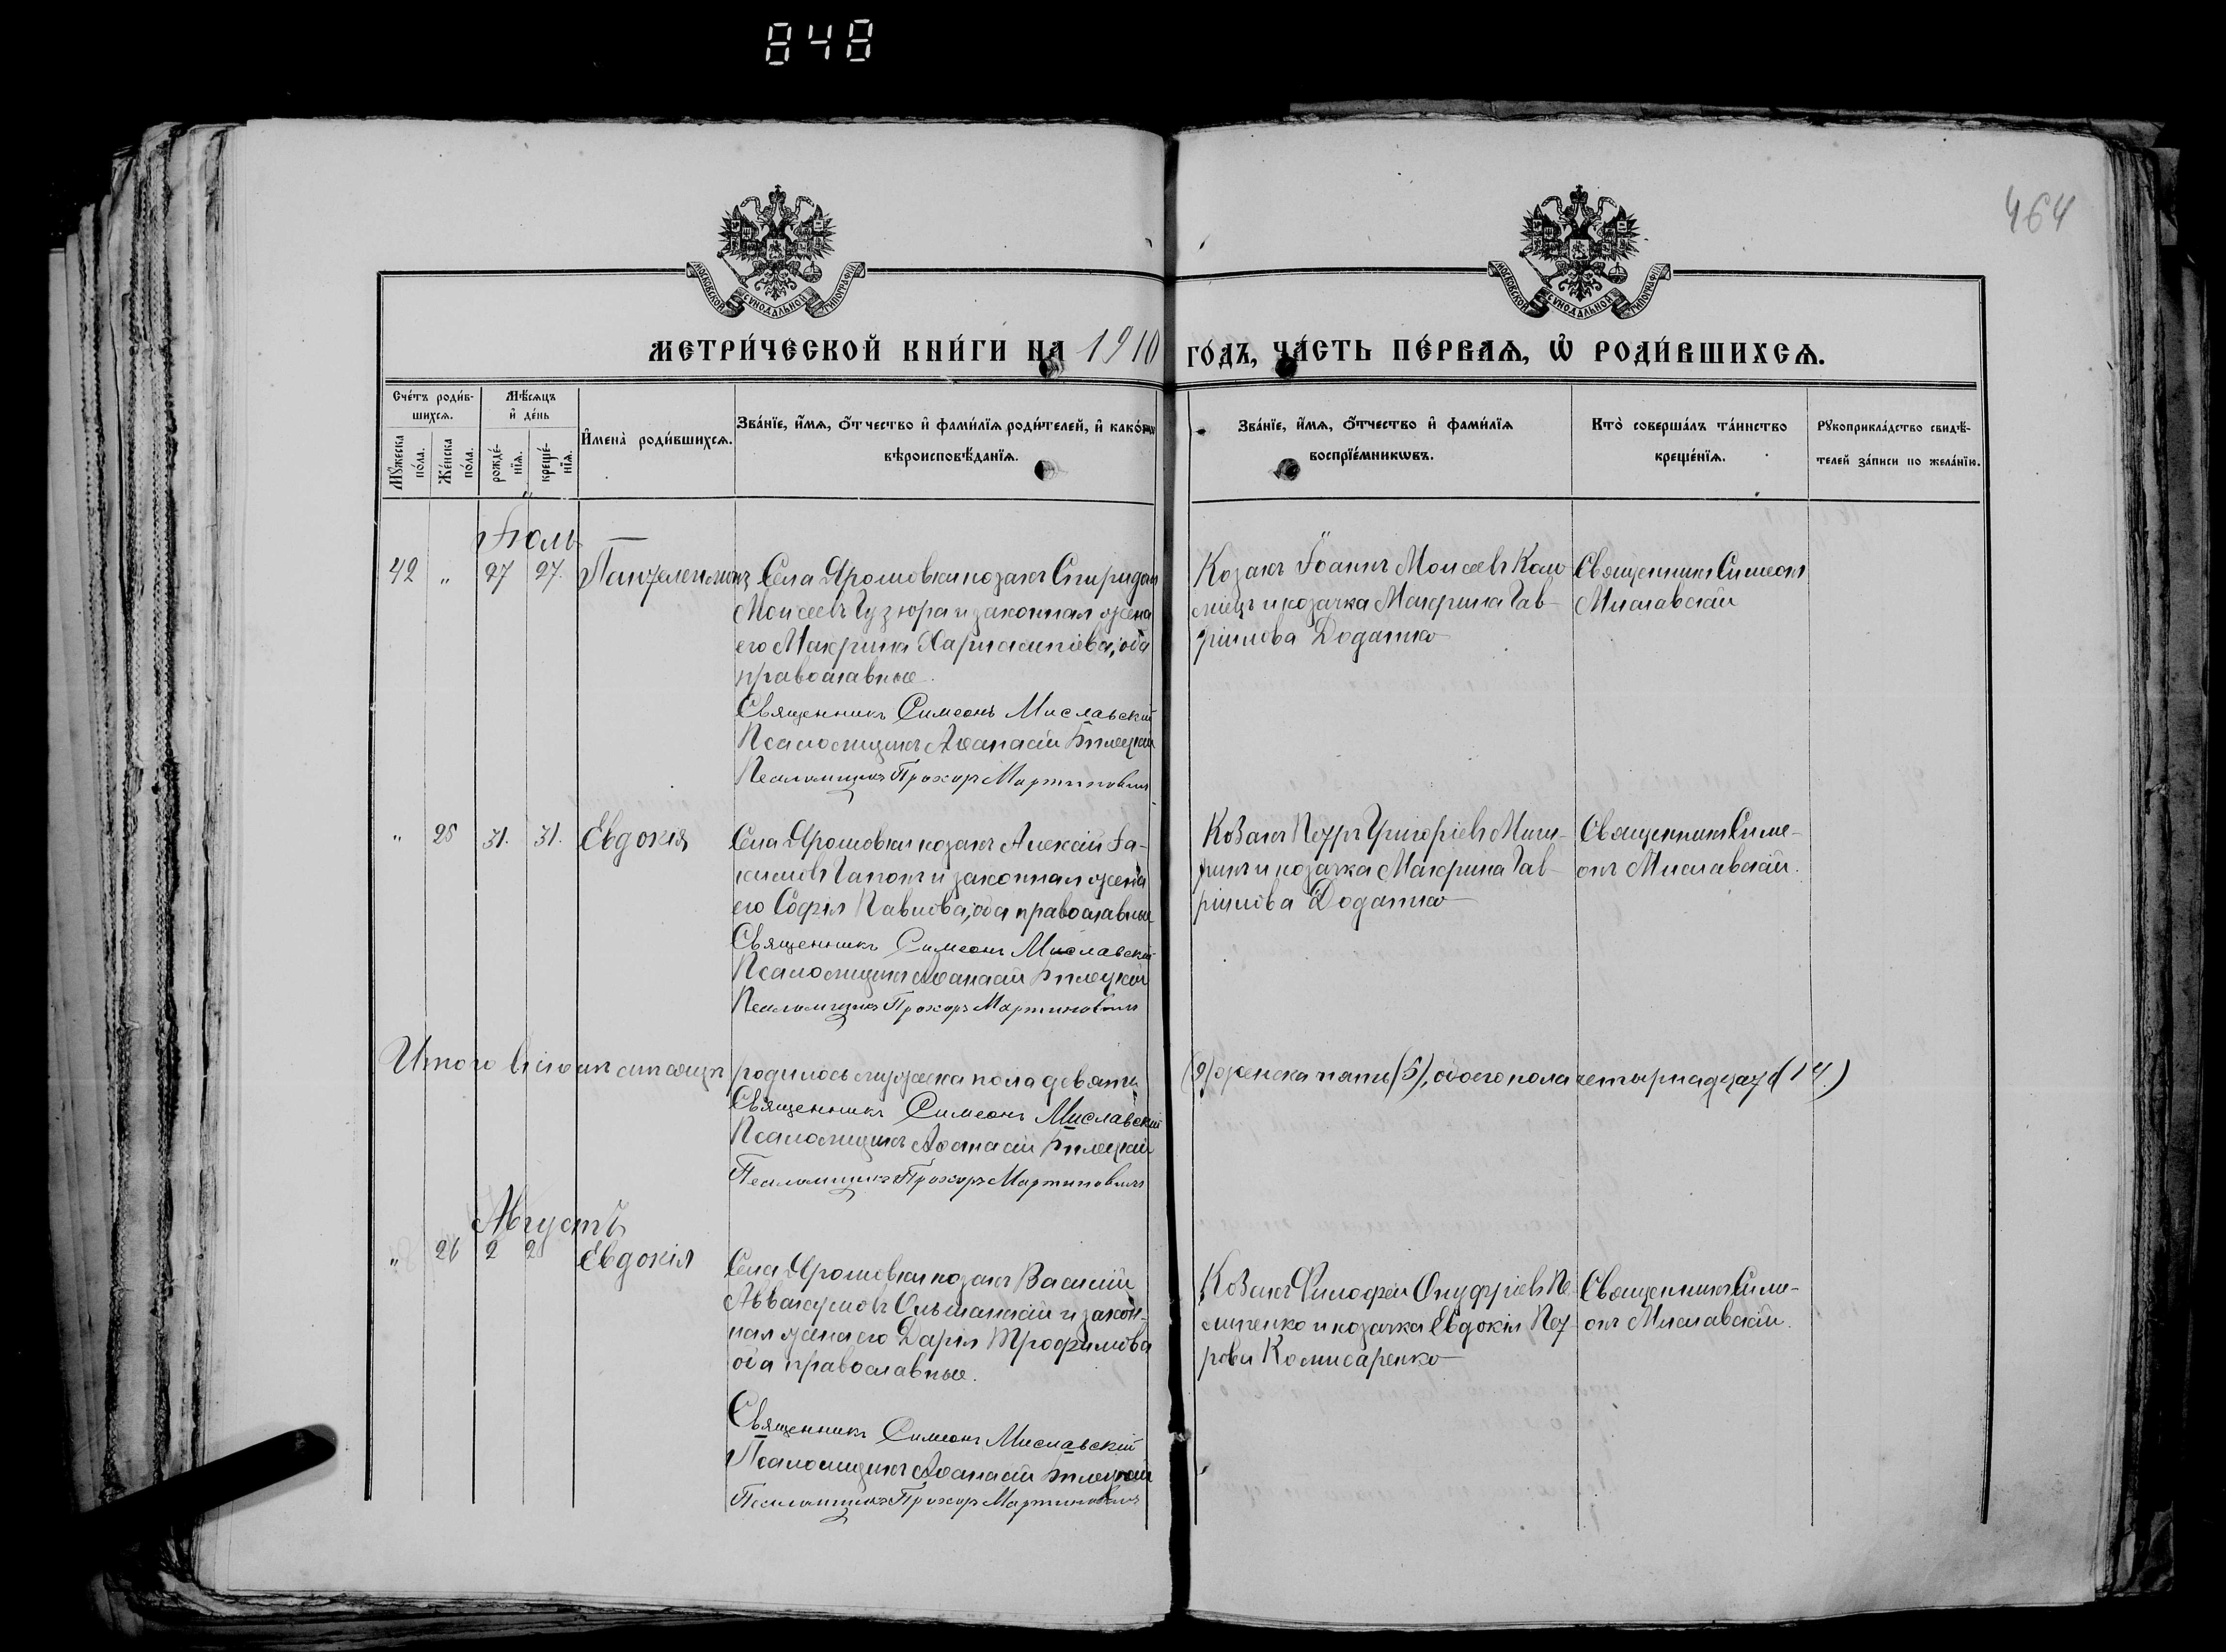 848
464
МОСКОВСКОЙ СѴНОДАЛЬНОЙ ТИПОГРАФІИ
МОСКОВСКОЙ СѴНОДАЛЬНОЙ ТИПОГРАФІИ
МЕТРИ́ЧЕСКОЙ КНИ́ГИ НА 1910 ГО́ДЪ, ЧА́СТЬ ПЕ́РВАѦ, Ѡ҆ РОДИ́ВШИХСѦ.
Сче́тъ роди́в-
шихсѧ.
Мꙋжеска по́ла.
Же́нска по́ла.
Мѣ́сѧцъ
и҆ де́нь
рожде́-
нїѧ.
креще́-
нїѧ.
И҆мена̀ роди́вшихсѧ.
Зва́нїе, и҆́мѧ, ѻ҆́тчество и҆ фами́лїѧ роди́телей, и҆ како́гѡ
вѣроисповѣ́данїѧ.
Зва́нїе, и҆́мѧ, ѻ҆́тчество и҆ фами́лїѧ
воспрїе́мникѡвъ.
Кто̀ соверша́лъ та́инство
креще́нїѧ.
Рꙋкоприкла́дство свидѣ́-
телей за́писи по жела́нїю.
Іюль
42 „ 27 27. Пантелеимонъ
Села Ярошовки козакъ Спиридонъ
Моисеевъ Гузюра и законная жена
его Макрина Харлампіева, оба
православные.
Священникъ Симеонъ Миславский
Псаломщикъ Аѳанасій Билецкій
Псаломщикъ Прохоръ Мартиновичъ
Козакъ Іоаннъ Моисеевъ Коло
міецъ и козачка Макрина Гав-
ріилова Додатко
Священникъ Симеонъ
Миславскій
„ 25 31. 31. Евдокія
Села Ярошовки козакъ Алексій Іа-
кимовъ Гапонъ и законная жена
его Софія Павлова, оба православные
Священникъ Симеонъ Миславский
Псаломщикъ Аѳанасій Билецкій
Псаломщикъ Прохоръ Мартиновичъ
Козакъ Петръ Григоріевъ
и козачка Макрина Гав-
ріилова Додатко
Священникъ Симе-
онъ Миславскій.
Итого въ іюлѣ мѣсяцѣ родилось мужеска пола девять (9) женска пять (5), обоего пола четырнадцать (14.)
Священникъ Симеонъ Миславский
Псаломщикъ Аѳанасій Билецкій
Псаломщикъ Прохоръ Мартиновичъ
Августъ
„ 26 2 2 Евдокія
Села Ярошовки козакъ Василій
Аввакумовъ Ольшанскій и закон-
ная жена его Дарія Трофимова
оба православные.
Священникъ Симеонъ Миславский
Псаломщикъ Аѳанасій Билецкій
Псаломщикъ Прохоръ Мартиновичъ
Козакъ Филофей Онуфріевъ Пе-
липенко и козачка Евдокія Пет-
рова Комисаренко
Священникъ Симе-
онъ Миславскій.